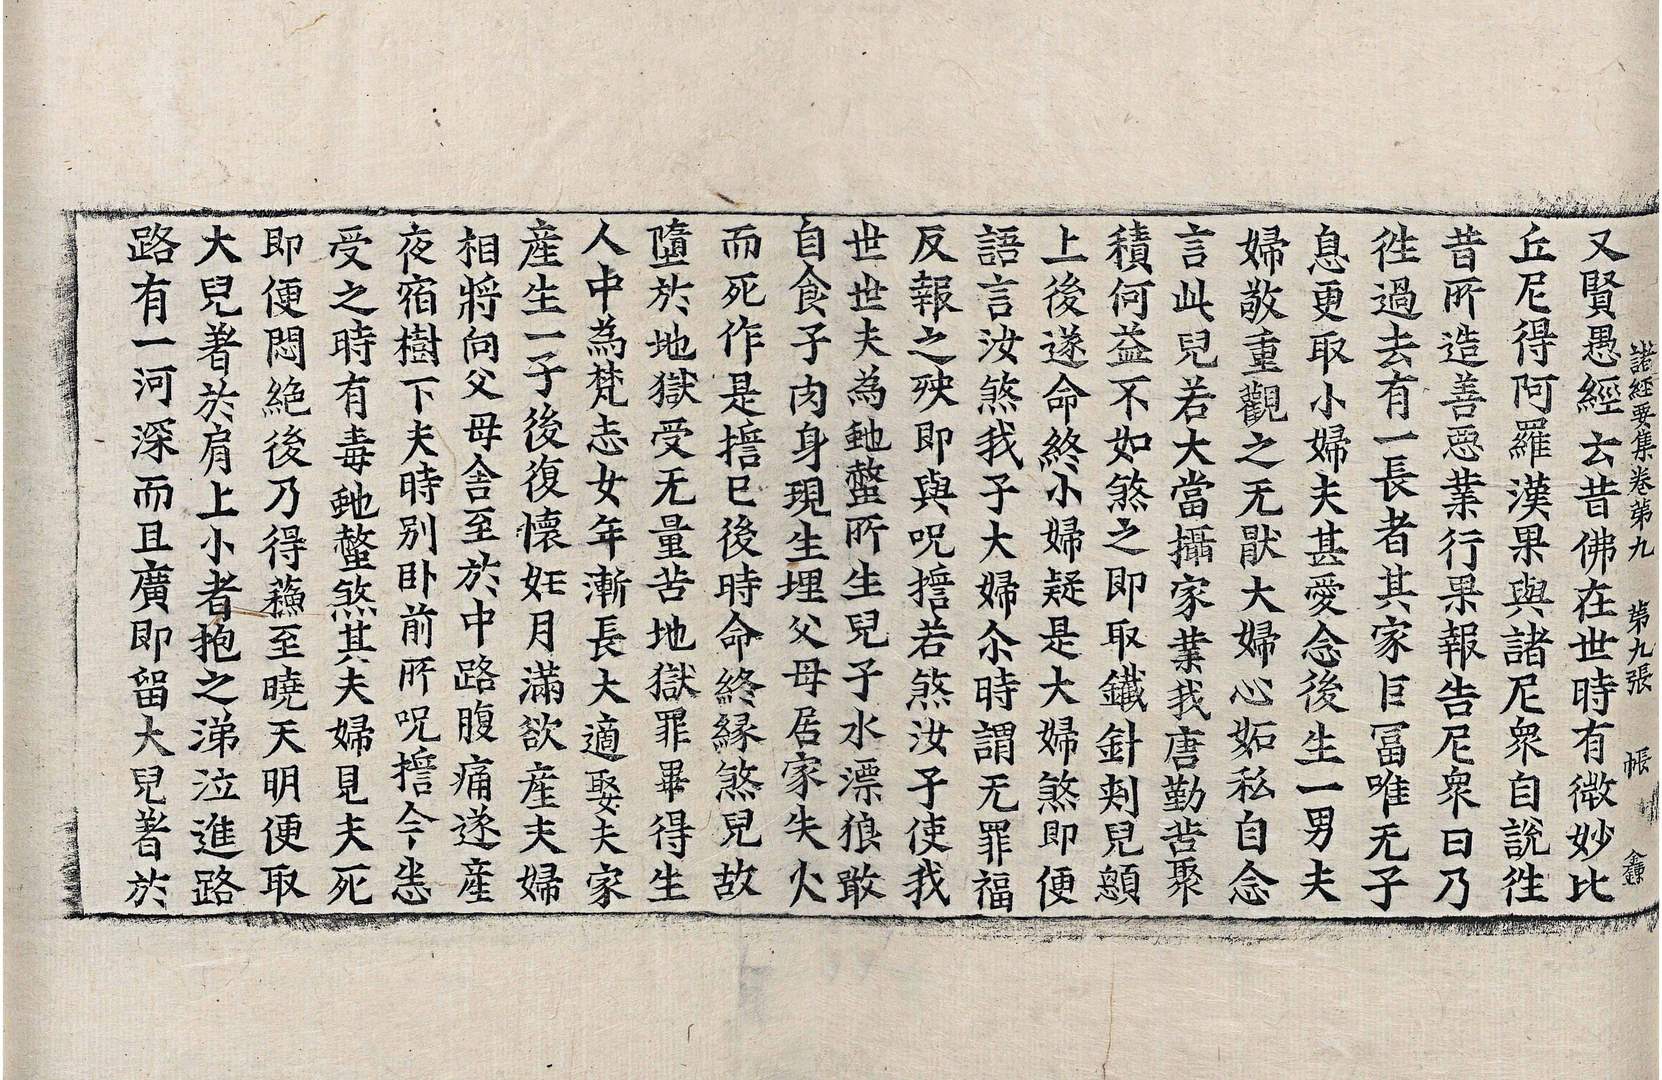 諸經要集卷第九 第九張 帳
又賢愚經云昔佛在世時有微妙比
丘尼得阿羅漢果與諸尼衆自說徃
昔所造善惡業行果報告尼衆曰乃
徃過去有一長者其家巨冨唯无子
息更取小婦夫甚愛念後生一男夫
婦敬重觀之无猒大婦心妬私自念
言此兒若大當攝家業我唐勤苦聚
積何益不如煞之即取鐵針刾兒顖
上後遂命終小婦疑是大婦煞即便
語言汝煞我子大婦尒時謂无罪福
反報之殃即與呪擔若煞汝子使我
世世夫為虵螫所生兒子水漂狼敢
自食子肉身現生埋父母居家失火
而死作是擔已後時命終縁煞兒故
墮於地獄受无量苦地獄罪畢得生
人中為梵志女年漸長大適娶夫家
産生一子後復懷妊月滿欲産夫婦
相將向父母舍至於中路腹痛遂産
夜宿樹下夫時别卧前所呪擔今悉
受之時有毒虵螫煞其夫婦見夫死
即便悶絶後乃得蘓至曉天明便取
大兒著於肩上小者抱之涕泣進路
路有一河深而且廣即留大兒著於